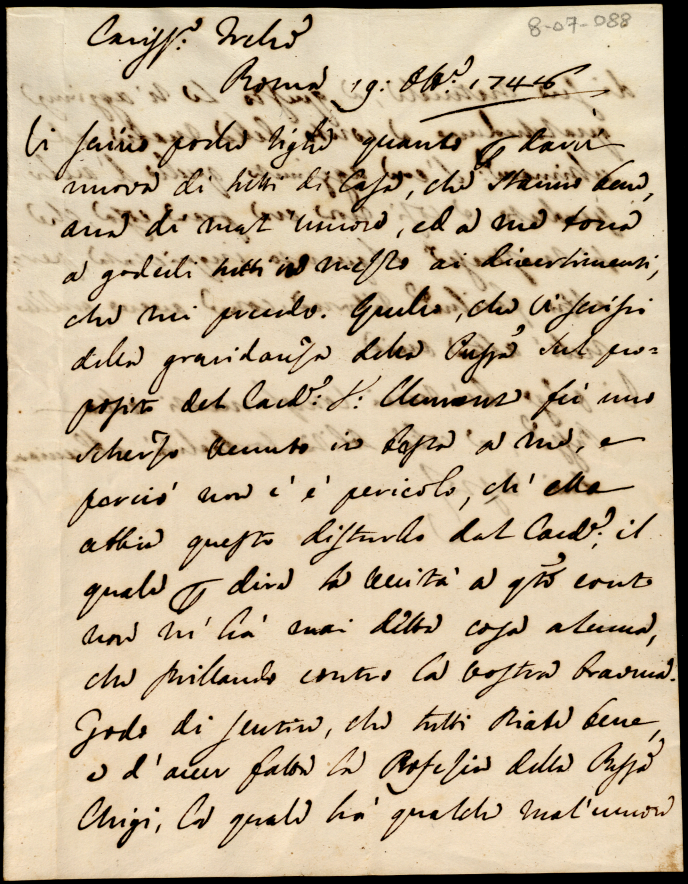 8-07-088
Cariss:º
Roma 19: Ott:e 1746
Vi scrivo poche righe quanto p darvi
nuova di tutti di Casa, che stanno bene,
ma di mal umore, ed a me tocca
a goderli tutti in mezzo ai divertimenti,
che mi prendo. Quello, che vi scrissi
della gravidanza della Pnssa sul pro=
posito del Card:e S: Clement fù uno
scherzo venuto in testa a me, e
perciò non c'è pericolo, ch'ella
abbia questo disturbo dal Card:e, il
quale p dire la verità a qto conto
non m'hà mai detto cosa alcuna,
che strillando contro la vostra
Godo di sentire, che tutti state bene,
e d'aver fatta la Profezia della Pnssa
Chigi, la quale hà qualche mal'umore